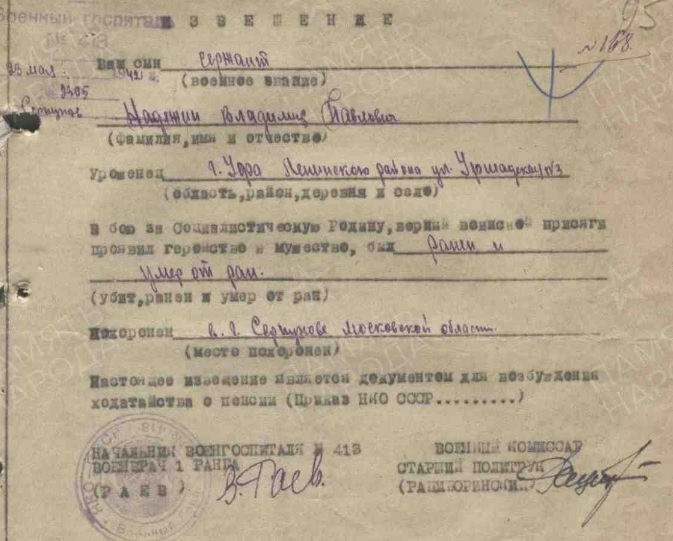 Военный госпиталь
№ 413
ИЗВЕЩЕНИЕ
95
№168
23 мая 1942 г.
2305
Серпухов
Ваш сын сержант
(военное звание)
Владимир Павлович
(фамилия, имя и отчество)
Уроженец г. Уфа Ленинского района ул.
(область, район, деревня и село)
В бою за Социалистическую Родину, верный воинской присяги
проявил геройство и мужество, был ранен и
умер от ран.
(убит, ранен и умер от ран)
Похоронен в г. Серпухове Московской области.
(место похоронен)
Настоящее извещение является документом для возбуждения
ходатайства о пенсии (Приказ НКО СССР.........)
НАЧАЛЬНИК ВОЕНГОСПИТАЛЯ № 413
ВОЕНВРАЧ 1 РАНГА
(РАЕВ)
ВОЕННЫЙ КОМИССАР
СТАРШИЙ ПОЛИТРУК
ПАМЯТЬ НАРОДА